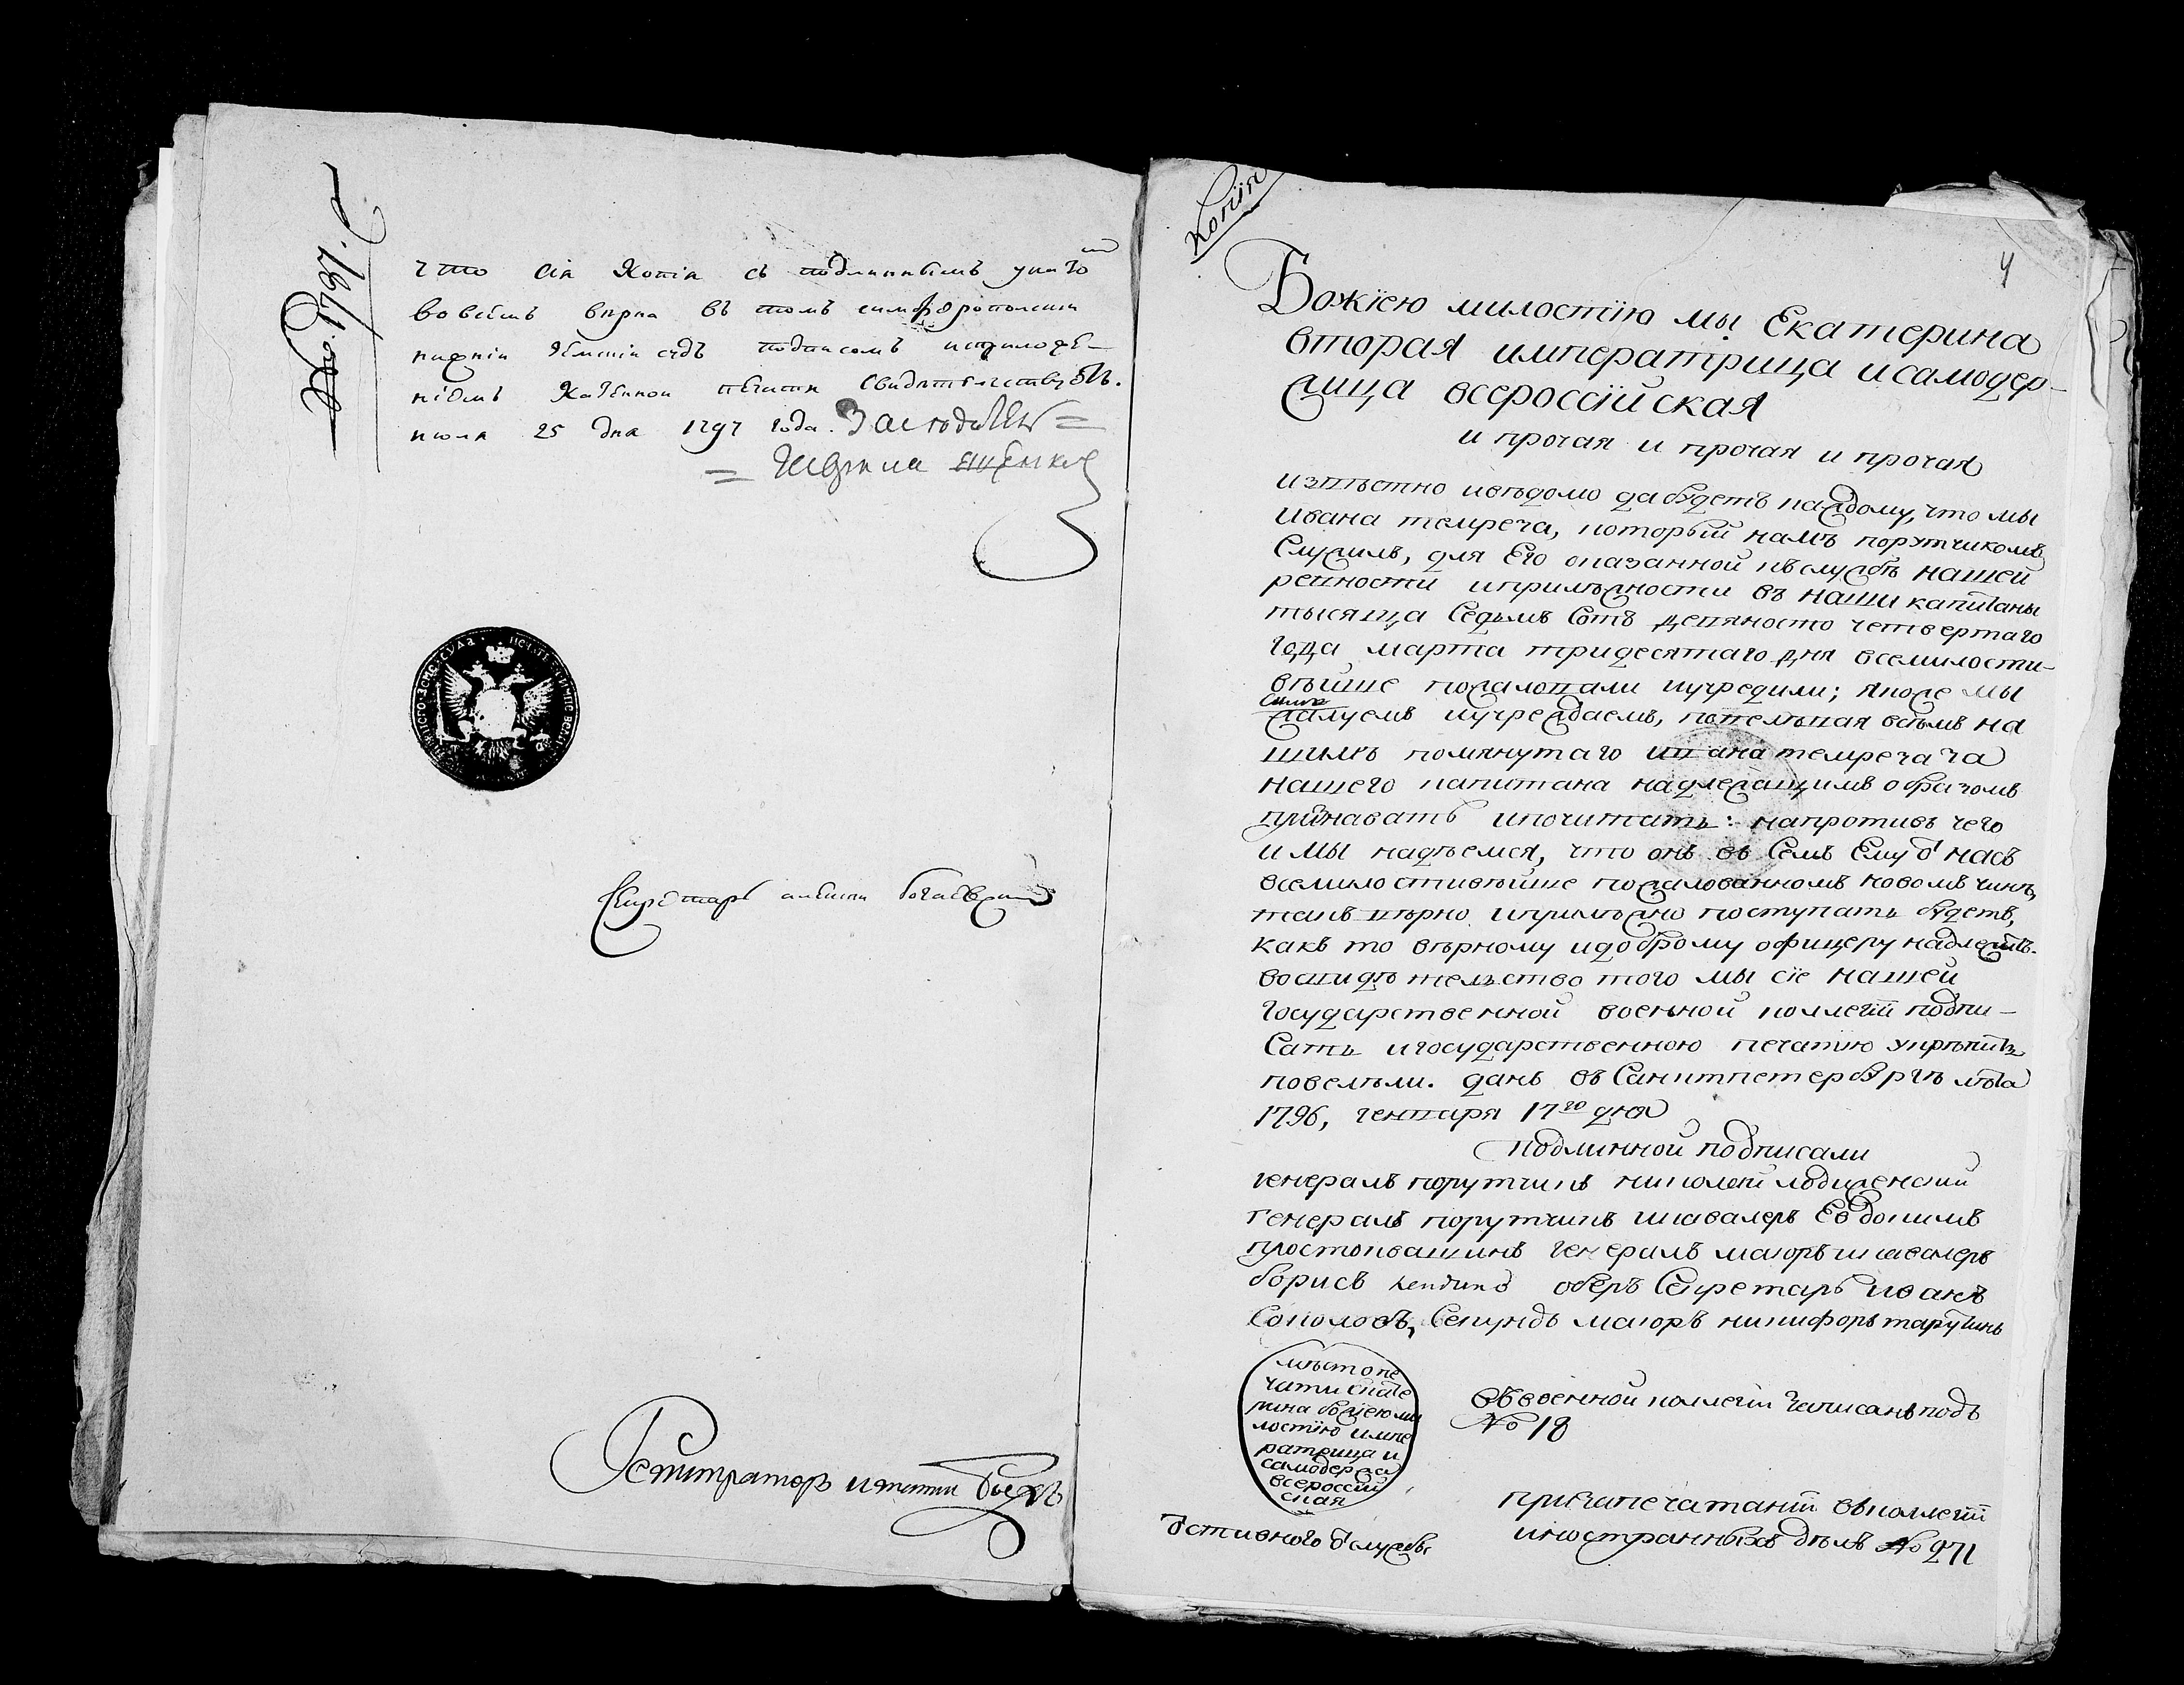 что сія Копія съ подлиннымъ указом
во всѣмъ вѣрна въ томъ симферополски
нижніи Земскіи судъ подписомъ и приложе-
ніемъ Казенной печати Свидѣтелствуетъ.
июля 25 дня 1797 года. Заседатель =
Секретарь
Регистраторъ
Копія
4
Божіею милостію мы Екатерина
вторая императрица и самодер-
жица всероссійская
и прочая и прочая и прочая
извѣстно и вѣдомо да будетъ каждому, что мы
ивана темреча, который намъ порутчикомъ
Служилъ, для Его оказанной къ службѣ нашей
ревности и прилѣжности въ наши капитаны
тысяща Седьмъ Сотъ девяносто четвертаго
года марта тридесятаго дня всемилости-
вѣйше пожаловали и учредили; якоже мы
Симъ
жалуемъ и учреждаемъ, повелѣвая всѣмъ на
шимъ помянутаго ивана темреча за
нашего капитана надлежащимъ образомъ
признавать и почитать: напротивъ чего
и мы надѣемся, что онъ въ Семъ Ему от насъ
всемилостивѣйше пожалованномъ новомъ чинѣ,
такъ вѣрно и прилѣжно поступать будетъ,
какъ то вѣрному и доброму офицеру надлежитъ.
во свидѣтельство того мы сіе нашей
государственной военной коллегіи подпи-
Сать и государственною печатью укрѣпить
повелѣли. данъ въ Санктпетербургѣ лѣта
1796, генваря 17го дня
подлинной подписали
генералъ порутчикъ николай
генералъ порутчикъ и кавалеръ Евдокимъ
генералъ маіоръ и кавалеръ
борисъ оберъ Секретарь иванъ
Соколовъ, Секундъ маіоръ никифоръ
мѣсто пе
чати Екате
рина божіею ми
лостію импе
ратрица и
самодержца
всероссій
ская
въ военной коллегіи записанъ подъ
№ 18
при запечатаніи въ коллегіи
иностранныхъ дѣлъ № 271
отставного от службы